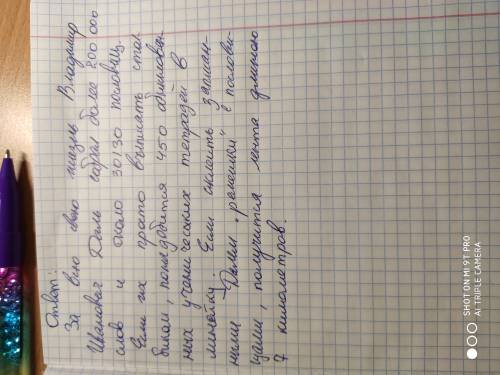 Ответ:
За всю свою жизнь Владимир
Иванович Даль собрал более 200 000
слов и около 30130 пословиц.
Если их просто выписать стол-
биком, понадобится 450 одинаковых
ных ученических тетрадей в
линейку. Если склеить записан-
ными Далем „ремешки" с послови-
цами, получится лента длиною
7 километров.
SHOT ON MI 9T PRO
AI TRIPLE CAMERA